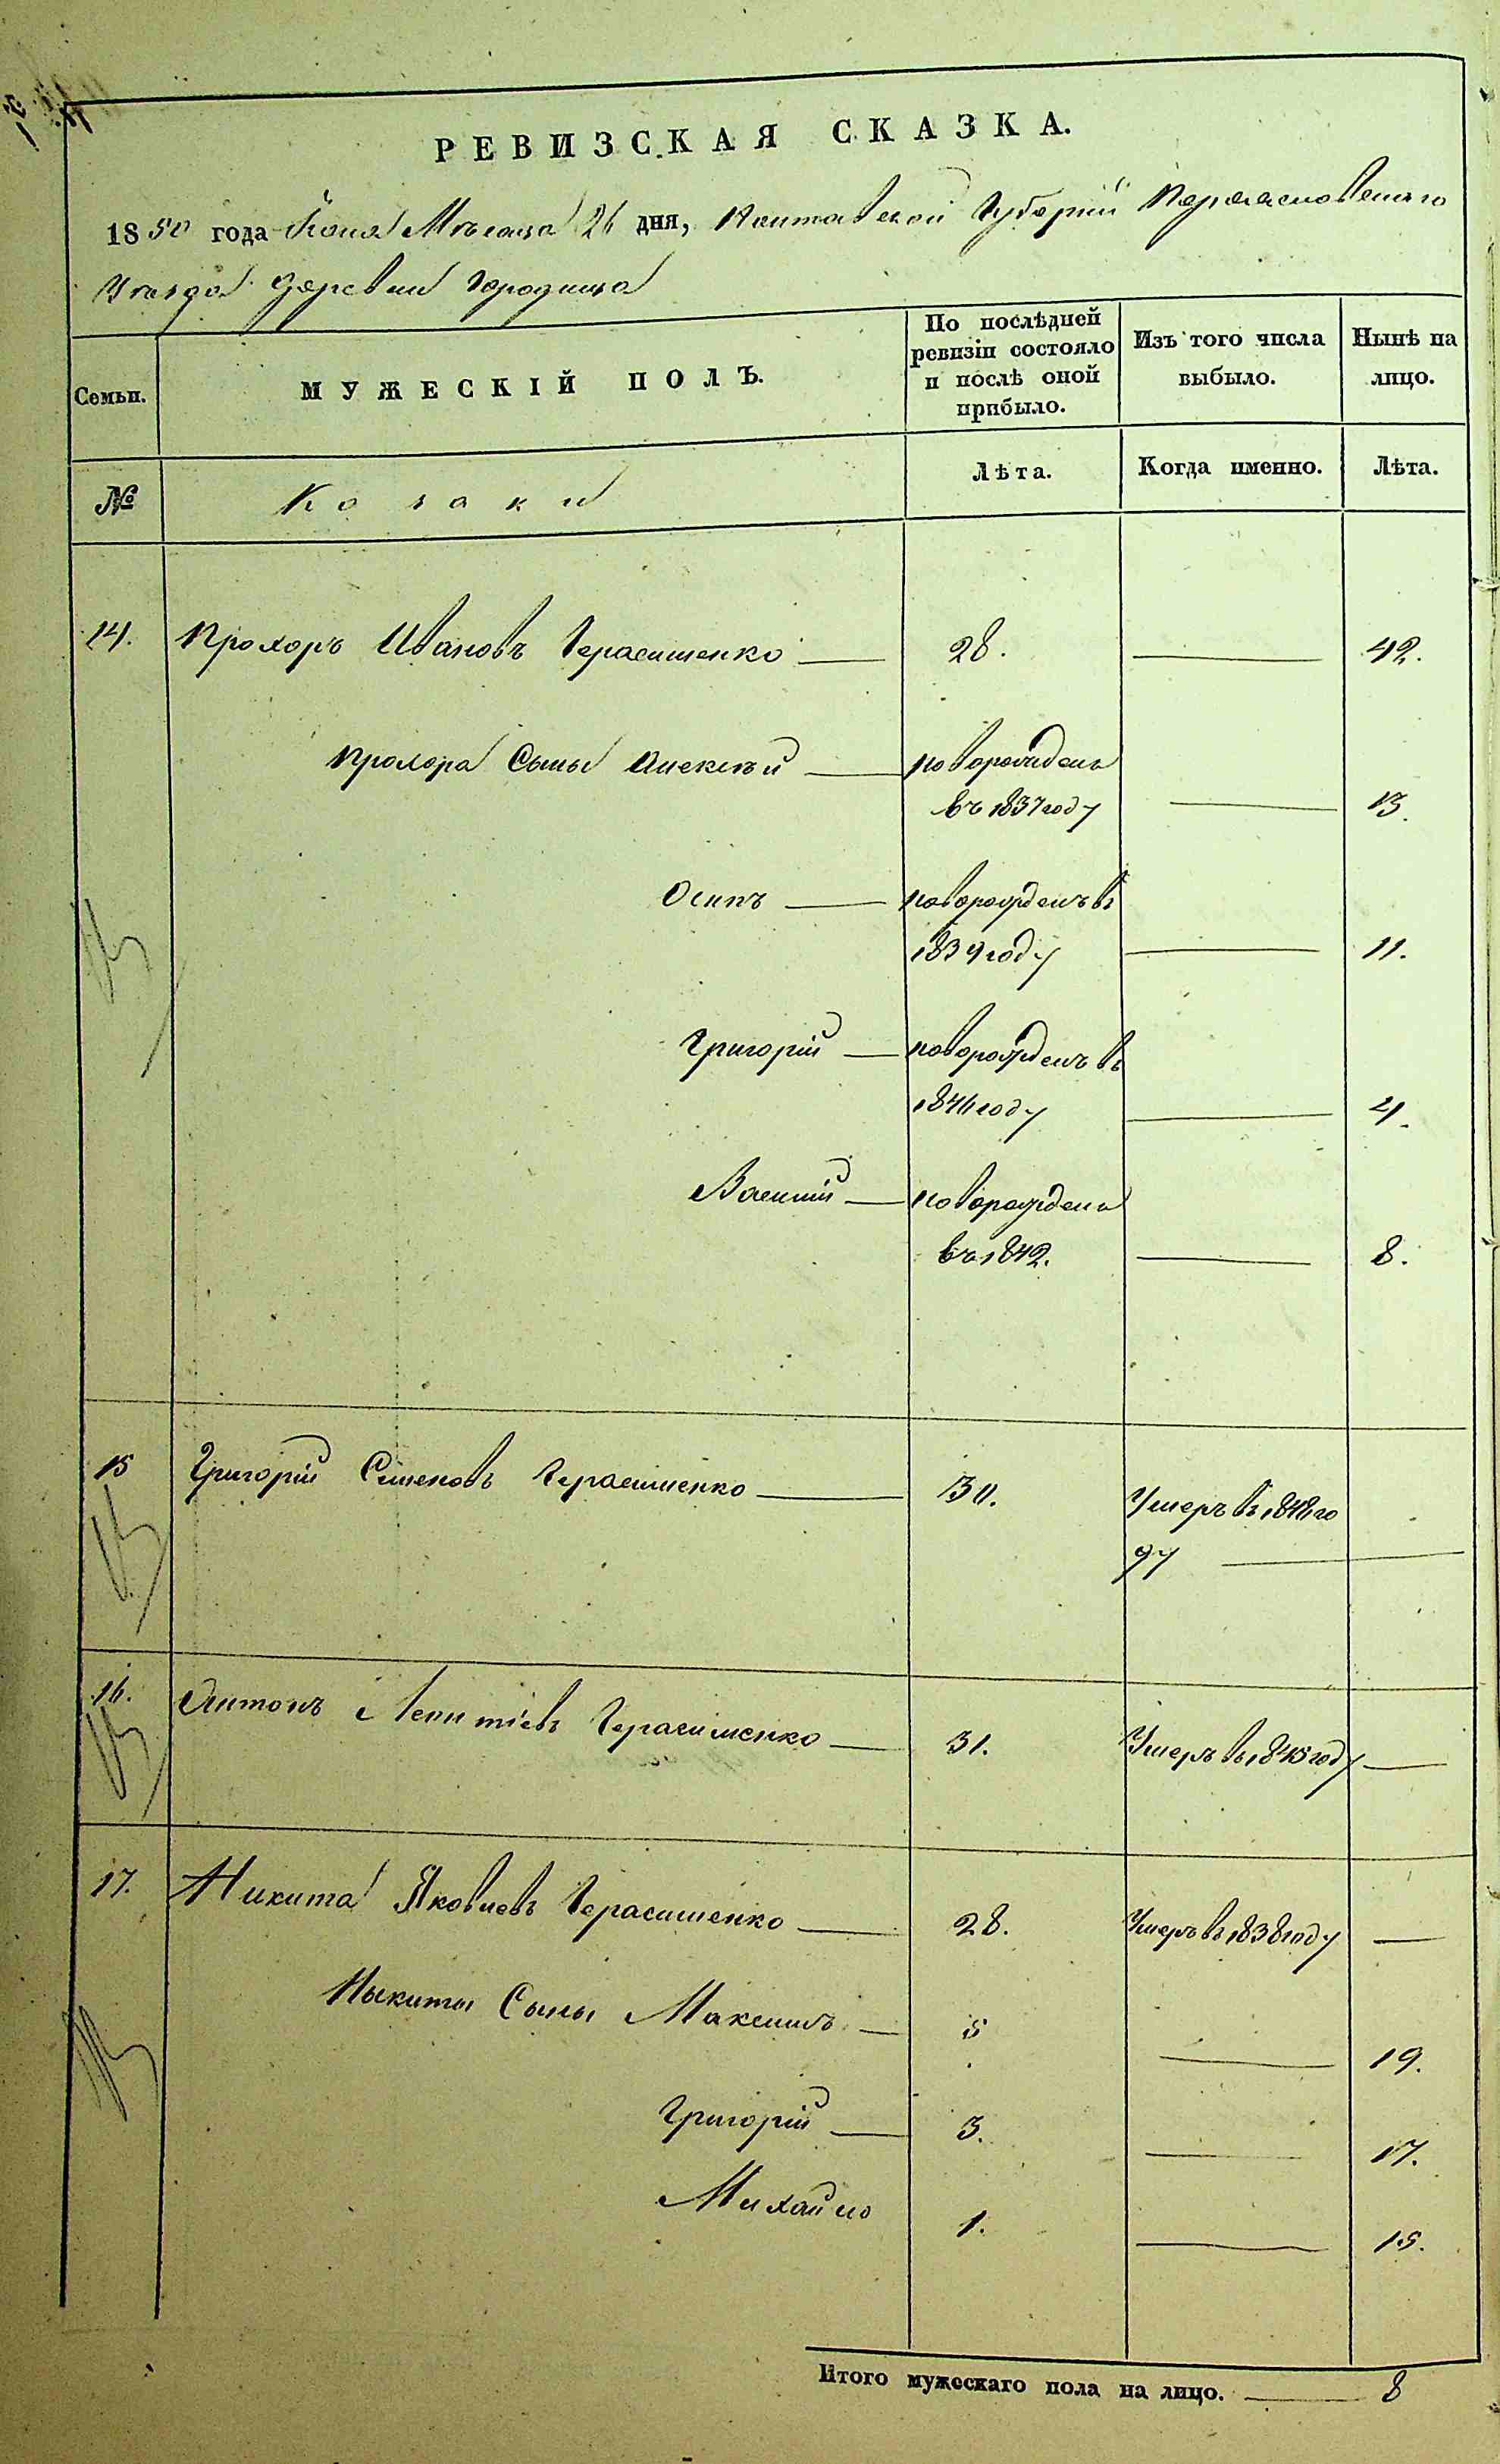 РЕВИЗСКАЯ СКАЗКА.
1850 года Іюня Мѣсяца 26 дня, Полтавской Губерніи Переяславскаго
Уѣзда Деревни Городища
Семьи.
МУЖЕСКІЙ ПОЛЪ.
По послѣдней ревизіи состояло и послѣ оной прибыло.
Изъ того числа выбыло.
Нынѣ на лицо.
№
Козаки
Лѣта.
Когда именно.
Лѣта.
14. Прохоръ Ивановъ Герасименко — 28. — 42.
Прохора Сыны Алексѣй — новорожденъ
въ 1837 году — 13.
Осипъ — новорожденъ въ
1839 году — 11.
Григорій — новорожденъ въ
1846 году — 4.
Василій — новорожденъ
въ 1842. — 8.
15 Григорій Семеновъ Герасименко — 30. Умеръ въ 1848 го
ду —
16. Антонъ Леонтіевъ Герасименко — 31. Умеръ въ 1845 году —
17. Никита Яковлевъ Герасименко — 28. Умеръ въ 1838 году —
Никиты Сыны Максимъ — 5 — 19.
Григорій — 3. — 17.
Михайло 1. — 15.
Итого мужескаго пола на лицо. — 8